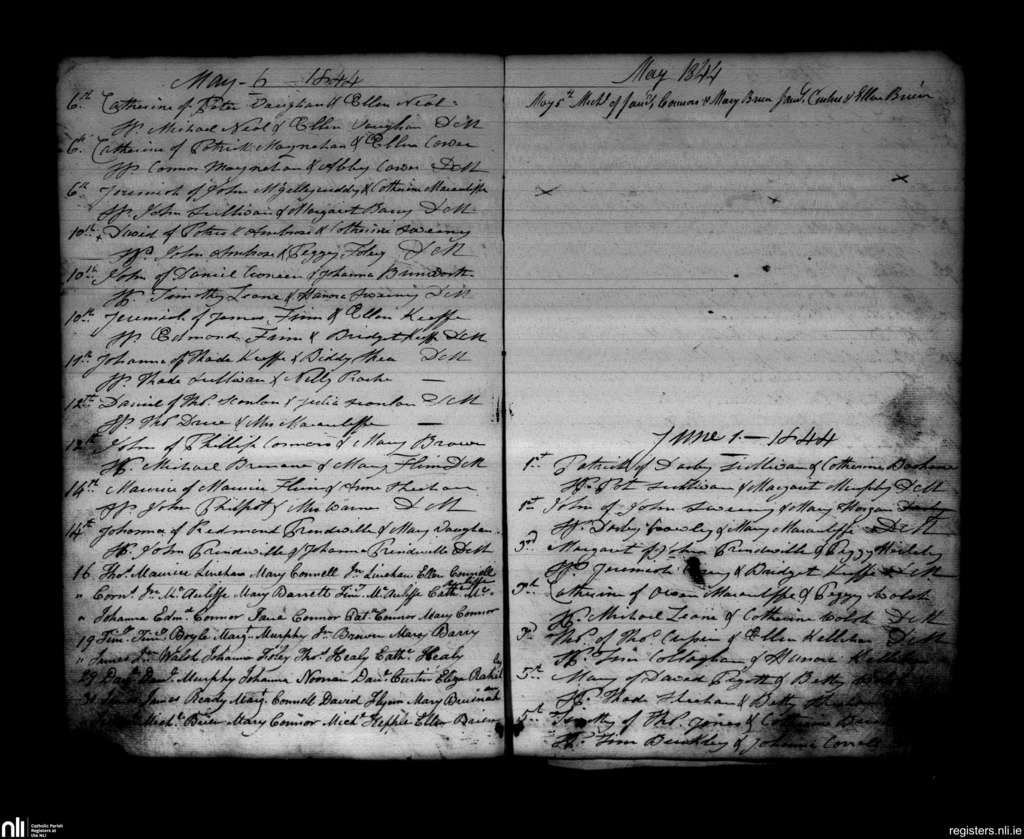 May - 6 - 1844
6th Catherine of Peter Vaughan & Ellen Neal
Sp. Michael Neal & Ellen Vaughan DcM
6th Catherine of Patrick Moynahan & Ellen
Sp. Connor Moynahan & Abby DcM
6th Jeremiah of John & Catherine Macauliffe
Sp. John Sullivan & Margaret Barry DcM
10th David of Patrick Ambrose & Catherine Sweeny
Sp. John Ambrose & Peggy Foley DcM
10th John of Daniel & Johanna
Sp. Timothy Leane & Hanora Sweeny DcM
10th Jeremiah of James Finn & Ellen Keeffe
Sp. Edmond Finn & Bridget Keeffe DcM
11th Johanna of Thade Keeffe & Biddy Shea DcM
Sp. Thade Sullivan & Nelly Roche —
12th Daniel of Thos. Scanlan & Julia Scanlan DcM
Sp. Thos. & Mrs Macauliffe —
12th John of Phillip Connors & Mary Brown
Sp. Michael & Mary DcM
14th Maurice of Maurice & Anne Sheehan
Sp. John Philpot & Mrs Warner DcM
14th Johanna of Redmond Prendeville & Mary Vaughan
Sp. John Prendeville & Johanna Prendeville DcM
16 Thos. Maurice Linehan Mary Connell Jn. Linehan Ellen Connell
" Corns. Jn. McAuliffe Mary Barrett Timy. McAuliffe Cathe. Mc
" Johanna Edmd. Connor Jane Connor Patk. Connor Mary Connor
19 Timy. Timy. Boyle Margt. Murphy Jn. Brown Mary Barry
" James Jn. Walsh Johanna Foley Thos. Healy Cathe. Healy
29 Danl. Danl. Murphy Johanna Noonan Danl. Curtin Eliza
31 James Ready Margt. Connell David Flynn Mary
Michl. Brien Mary Connor Michl. Heppel Ellen
May 1844
May 5th Michl. of James Connors & Mary Brien James & Ellen Brien
June 1 - 1844
1st Patrick of Darby Sullivan & Catherine
Sp. Pat Sullivan & Margaret Murphy DcM
1st John of John Sweeny & Mary Horgan
Sp. Darby Crowley & Mary Macauliffe DcM
3rd Margaret of John Prendeville & Peggy
Sp. Jeremiah & Bridget Keeffe DcM
3rd Catherine of Owen Macauliffe & Peggy Walsh
Sp. Michael Leane & Catherine Walsh DcM
3rd Thos. of Thos. & Ellen Kelleher DcM
Sp. Tim Callaghan & Hanora
5th Mary of David & Betty
Sp. Thade Sheehan & Betty
5th Timothy of Thos. Jones & Catherine
Sp. Tim Buckley & Johanna
nli
Catholic Parish
Registers at
the NLI
registers.nli.ie